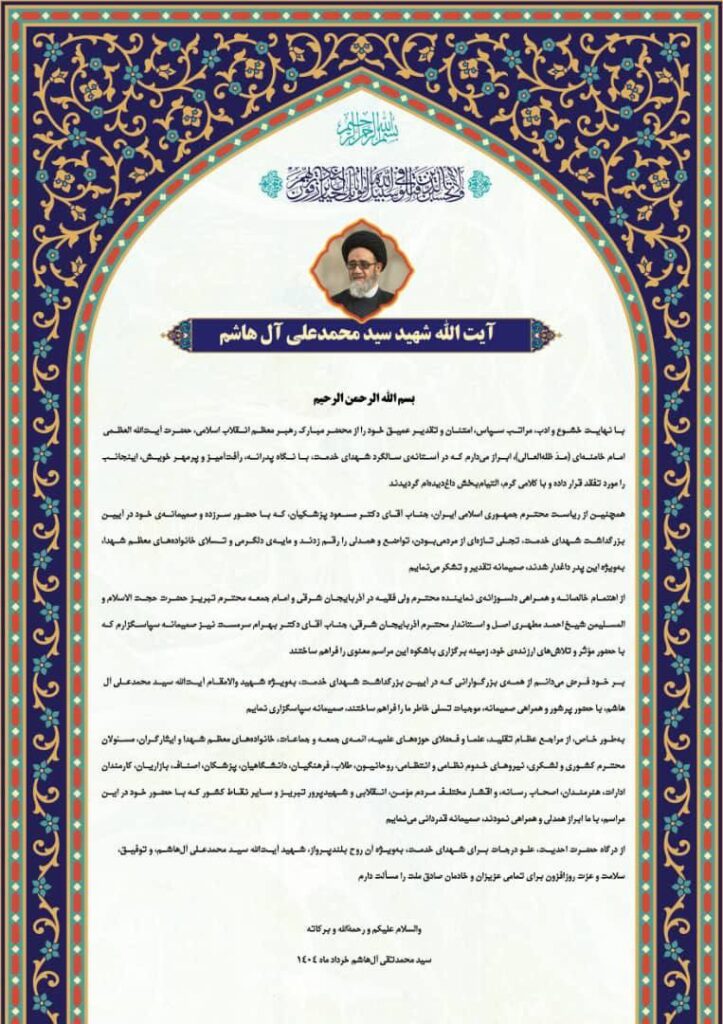 بسم الله الرحمن الرحیم
ولا تحسبن الذین قتلوا فی سبیل الله امواتا بل احیاء عند ربهم یرزقون
آیت الله شهید سید محمدعلی آل هاشم
بسم الله الرحمن الرحیم
با نهایت خشوع و ادب، مراتب سپاس، امتنان و تقدیر عمیق خود را از محضر مبارک رهبر معظم انقلاب اسلامی، حضرت آیت‌الله العظمی
امام خامنه‌ای (مدّ ظله‌العالی)، ابراز می‌دارم که در آستانه‌ی سالگرد شهدای خدمت، با نگاه پدرانه، رأفت‌آمیز و پرمهر خویش، اینجانب
را مورد تفقد قرار داده و با کلامی گرم، التیام‌بخش داغ‌دیده‌ام گردیدند
همچنین از ریاست محترم جمهوری اسلامی ایران، جناب آقای دکتر مسعود پزشکیان، که با حضور سرزده و صمیمانه‌ی خود در آیین
بزرگداشت شهدای خدمت، تجلی تازه‌ای از مردمی‌بودن، تواضع و همدلی را رقم زدند و مایه‌ی دلگرمی و تسلای خانواده‌های معظم شهدا،
به‌ویژه این پدر داغدار شدند، صمیمانه تقدیر و تشکر می‌نمایم
از اهتمام خالصانه و همراهی دلسوزانه‌ی نماینده محترم ولی فقیه در آذربایجان شرقی و امام جمعه محترم تبریز حضرت حجت الاسلام و
المسلیمن شیخ احمد مطهری اصل و استاندار محترم آذربایجان شرقی، جناب آقای دکتر بهرام سرمست نیز صمیمانه سپاسگزارم که
با حضور مؤثر و تلاش‌های ارزنده‌ی خود، زمینه برگزاری باشکوه این مراسم معنوی را فراهم ساختند
بر خود فرض می‌دانم از همه‌ی بزرگوارانی که در آیین بزرگداشت شهدای خدمت، به‌ویژه شهید والامقام آیت‌الله سید محمدعلی آل
هاشم، با حضور پرشور و همراهی صمیمانه، موجبات تسلی خاطر ما را فراهم ساختند، صمیمانه سپاسگزاری نمایم
به‌طور خاص، از مراجع عظام تقلید، علما و فضلای حوزه‌های علمیه، ائمه‌ی جمعه و جماعات، خانواده‌های معظم شهدا و ایثارگران، مسئولان
محترم کشوری و لشکری، نیروهای خدوم نظامی و انتظامی، روحانیون، طلاب، فرهنگیان، دانشگاهیان، پزشکان، اصناف، بازاریان، کارمندان
ادارات، هنرمندان، اصحاب رسانه، و اقشار مختلف مردم مؤمن، انقلابی و شهیدپرور تبریز و سایر نقاط کشور که با حضور خود در این
مراسم، با ما ابراز همدلی و همراهی نمودند، صمیمانه قدردانی می‌نمایم
از درگاه حضرت احدیت، علو درجات برای شهدای خدمت، به‌ویژه آن روح بلندپرواز، شهید آیت‌الله سید محمدعلی آل‌هاشم، و توفیق،
سلامت و عزت روزافزون برای تمامی عزیزان و خادمان صادق ملت را مسألت دارم
والسلام علیکم و رحمةالله و برکاته
سید محمدتقی آل‌هاشم خرداد ماه ۱۴۰۴